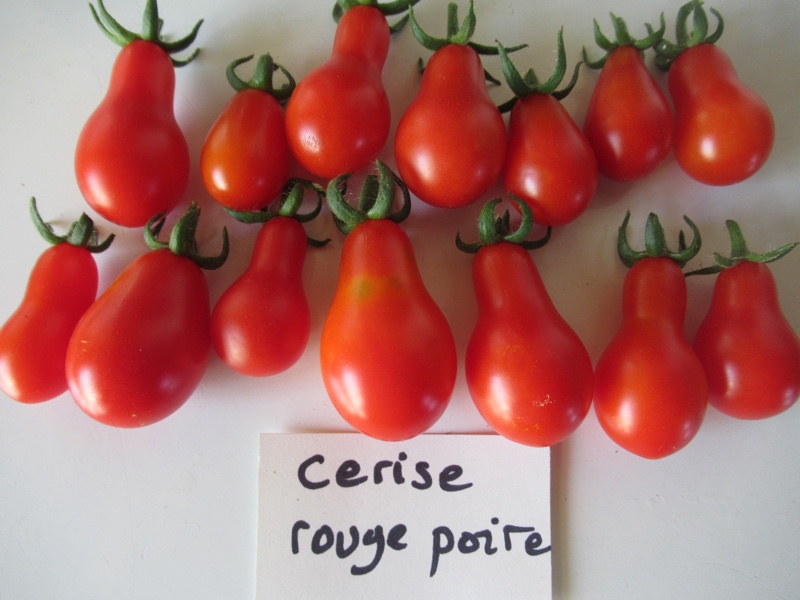 cerise
rouge poire